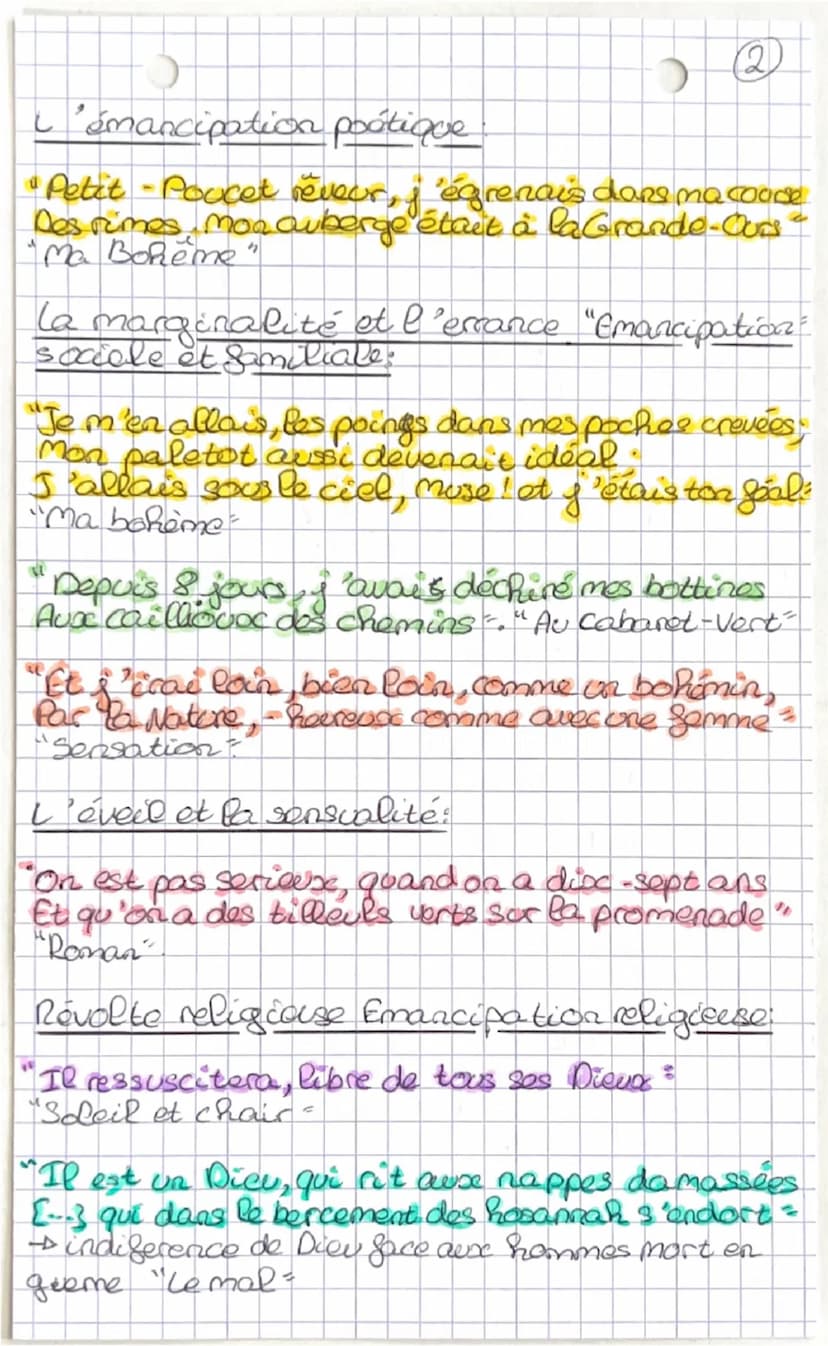 2
L'émancipation poétique :
"Petit-Poucet rêveur, j'égrenais dans ma course
Des rimes. Mon auberge était à la Grande-Ours"
"Ma Bohême"
La marginalité et l'errance "Emancipation"
sociale et familiale:
"Je m'en allais, les poings dans mes poches crevées;
Mon paletot aussi devenait idéal.
J'allais sous le ciel, Muse! et j'étais ton féal"
"Ma bohème"
"Depuis 8 jours, j'avais déchiré mes bottines
Aux caillioux des chemins". "Au Cabaret-Vert"
"Et j'irai loin, bien loin, comme un bohémin,
Par la Nature, - heureux comme avec une femme"
"Sensation"
L'éveil et la sensualité:
"On est pas serieux, quand on a dix-sept ans
Et qu'on a des tilleuls verts sur la promenade"
"Roman"
Révolte religieuse Emancipation religieuse:
"Il ressuscitera, libre de tous ses Dieux"
"Soleil et chair"
"Il est un Dieu, qui rit aux nappes damassées
[...] qui dans le bercement des hosannah s'endort"
→ indiference de Dieu face aux hommes mort en
guerre "Le mal"